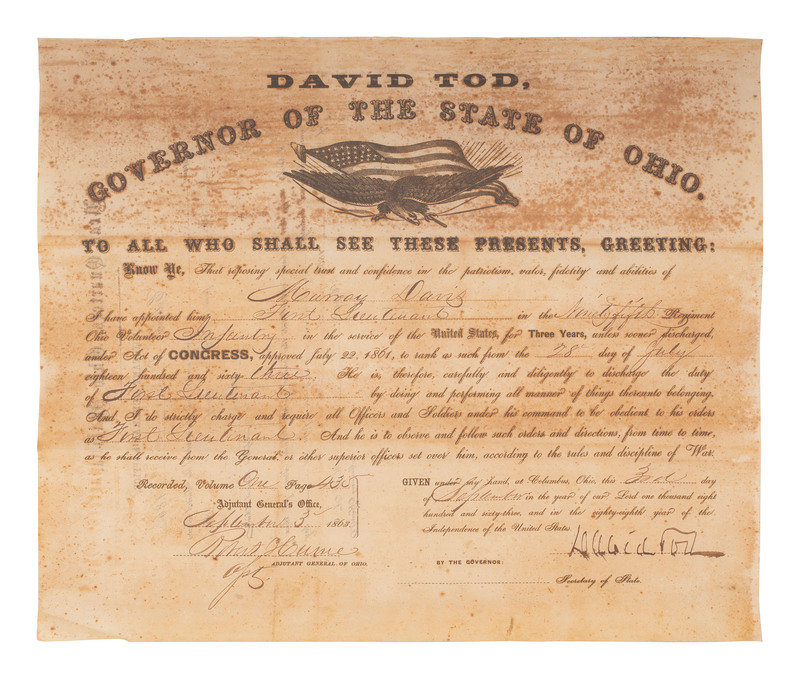 DAVID TOD,
GOVERNOR OF THE STATE OF OHIO.
TO ALL WHO SHALL SEE THESE PRESENTS, GREETING:
Know Ye, That reposing special trust and confidence in the patriotism, valor, fidelity and abilities of
Murray Davis
I have appointed him First Lieutenant in the Ninety fifth Regiment
Ohio Volunteer Infantry in the service of the United States, for Three Years, unless sooner discharged,
under Act of CONGRESS, approved July 22, 1861, to rank as such from the 28 day of July
eighteen hundred and sixty three. He is, therefore, carefully and diligently to discharge the duty
of First Lieutenant by doing and performing all manner of things thereunto belonging.
And I do strictly charge and require all Officers and Soldiers under his command to be obedient to his orders
as First Lieutenant. And he is to observe and follow such orders and directions, from time to time,
as he shall receive from the General, or other superior officers set over him, according to the rules and discipline of War.
Recorded, Volume One Page 435
Adjutant General's Office,
September 3 1863
ADJUTANT GENERAL OF OHIO.
GIVEN under my hand, at Columbus, Ohio, this day
of September in the year of our Lord one thousand eight
hundred and sixty-three, and in the eighty-eighth year of the
Independence of the United States.
David Tod
BY THE GOVERNOR:
Secretary of State.